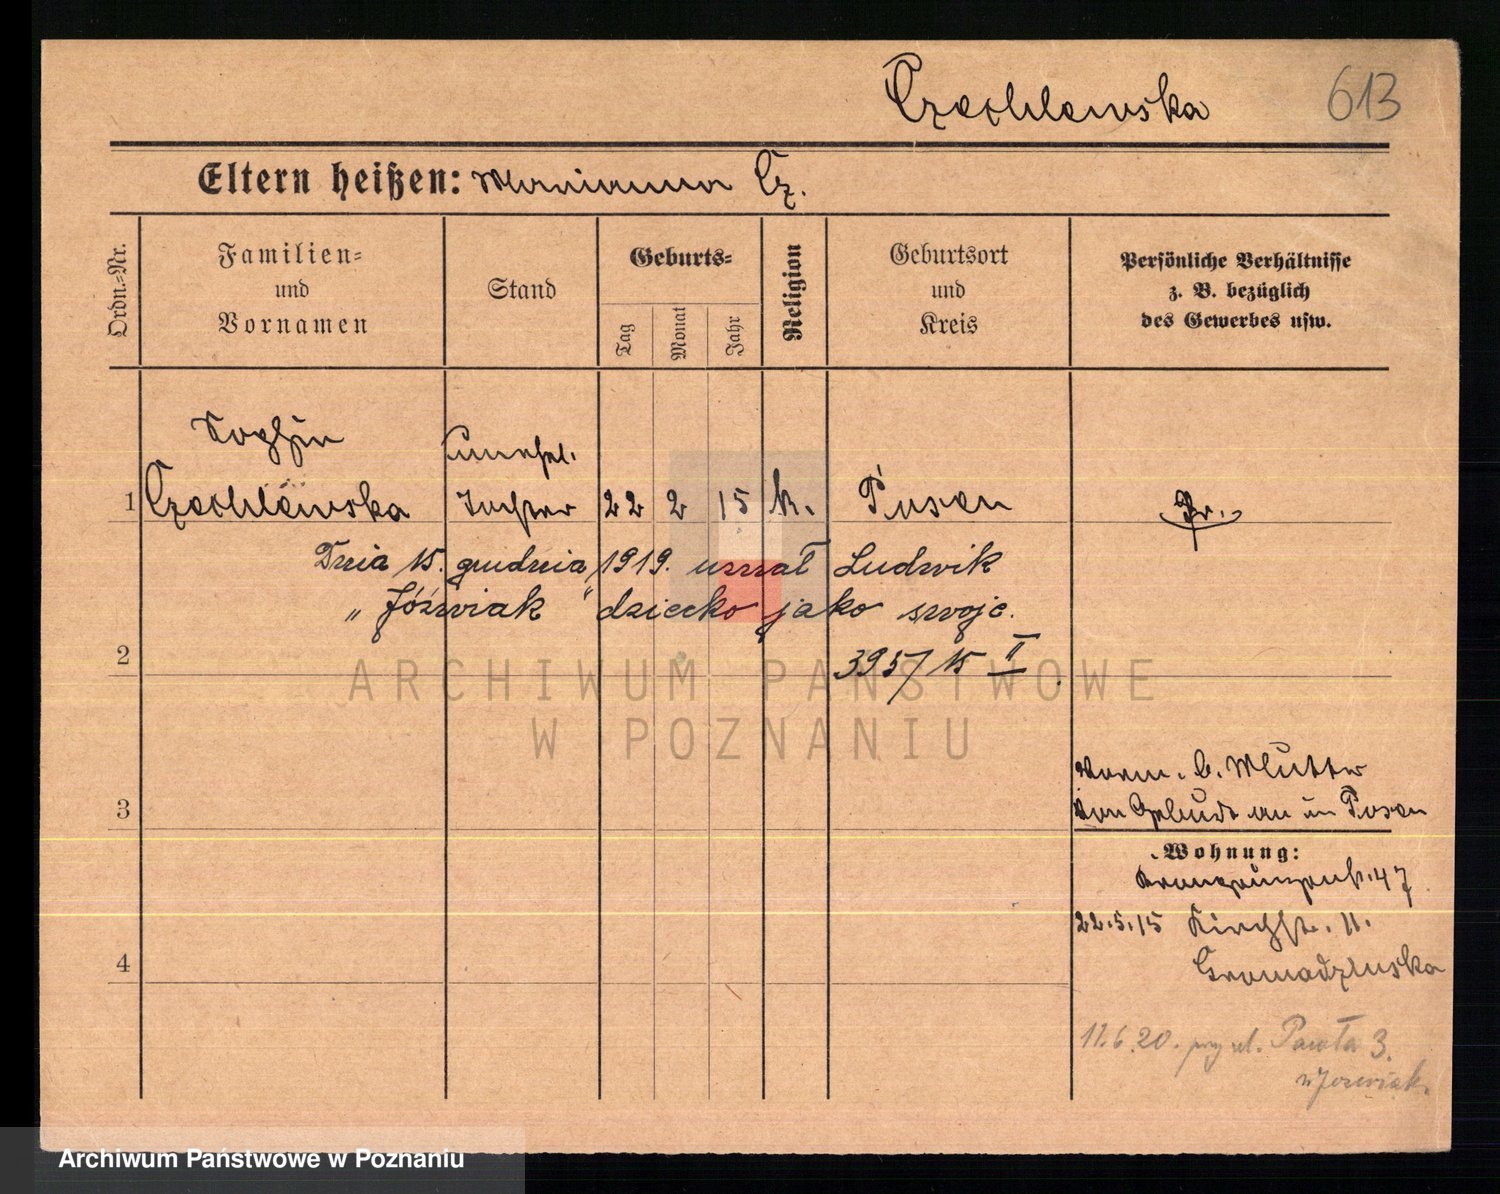 Czochlewska 613
Eltern heißen: Marianna Cz.
Ordn.=Nr.
Familien=
und
Vornamen
Stand
Geburts=
Tag
Monat
Jahr
Religion
Geburtsort
und
Kreis
Persönliche Verhältnisse
z. B. bezüglich
des Gewerbes usw.
Sophia unehel.
1 Czochlewska Tochter 22 2 15 k. Posen Pr.
Dnia 15. grudnia 1919. uznał Ludwik
„Jóźwiak" dziecko jako swoje.
2 395/15 II
ARCHIWUM PAŃSTWOWE
W POZNANIU
b. Mutter
3 von Geburt an in Posen
Wohnung:
Kronprinzenstr. 47
22.5.15 Kirchstr. 11.
4 Gromadzinska
11.6.20. przy ul. Pawła 3.
u Jozwiak.
Archiwum Państwowe w Poznaniu